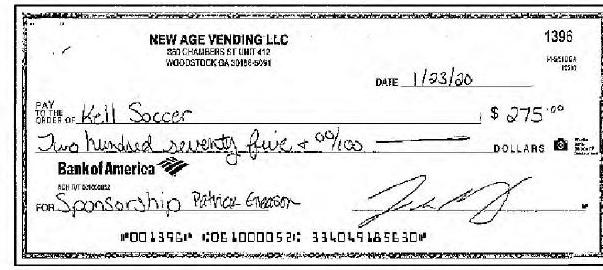 NEW AGE VENDING LLC
1396
350 CHAMBERS ST UNIT 412
WOODSTOCK GA 30188-5091
DATE 1/23/20
PAY TO THE ORDER OF Kell Soccer $ 275.00
Two hundred seventy five + 00/100 DOLLARS
Bank of America
FOR Sponsorship Patrick
⑈001396⑈ ⑆061000052⑆ 334049185630⑈